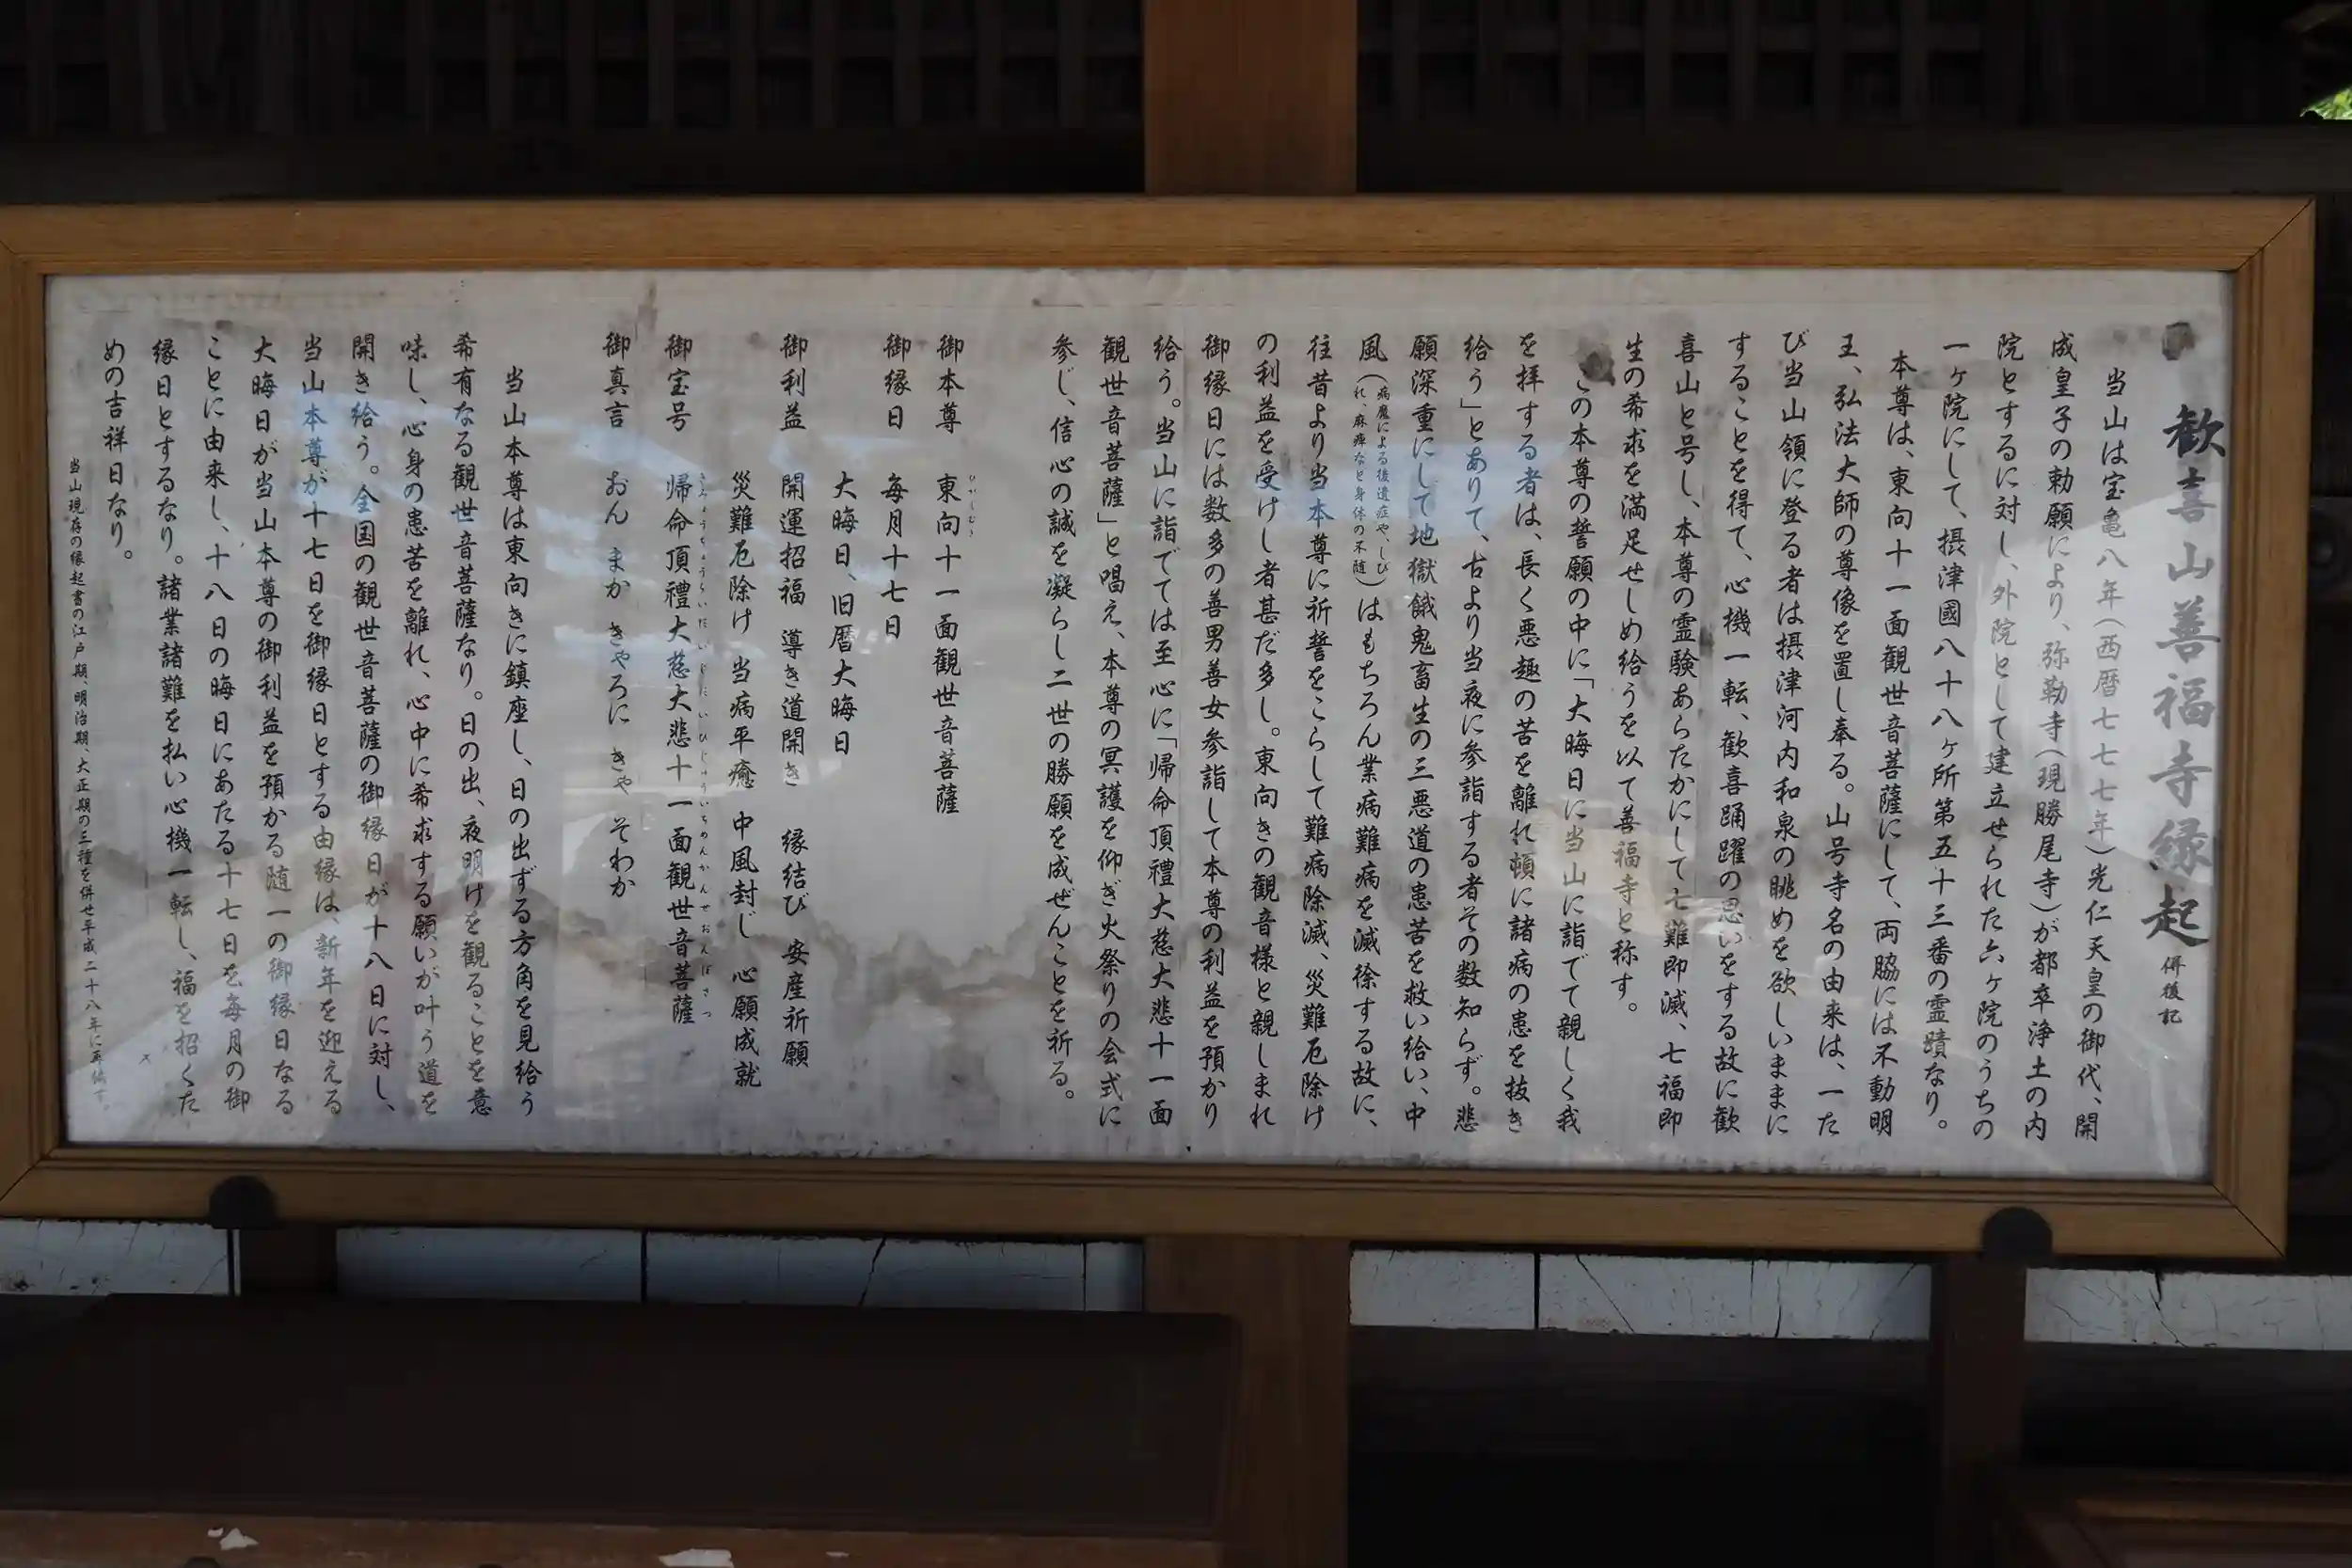 歓喜山善福寺縁起 併後記
当山は宝亀八年(西暦七七七年)光仁天皇の御代、開
成皇子の勅願により、弥勒寺(現勝尾寺)が都卒浄土の内
院とするに対し、外院として建立せられた六ヶ院のうちの
一ヶ院にして、摂津國八十八ヶ所第五十三番の霊蹟なり。
本尊は、東向十一面観世音菩薩にして、両脇には不動明
王、弘法大師の尊像を置し奉る。山号寺名の由来は、一た
び当山領に登る者は摂津河内和泉の眺めを欲しいままに
することを得て、心機一転、歓喜踊躍の思いをする故に歓
喜山と号し、本尊の霊験あらたかにして七難即滅、七福即
生の希求を満足せしめ給うを以て善福寺と称す。
この本尊の誓願の中に「大晦日に当山に詣でて親しく我
を拝する者は、長く悪趣の苦を離れ頓に諸病の患を抜き
給う」とありて、古より当夜に参詣する者その数知らず。悲
願深重にして地獄餓鬼畜生の三悪道の患苦を救い給い、中
風(病魔による後遺症や、しびれ、麻痺など身体の不随)はもちろん業病難病を滅徐する故に、
往昔より当本尊に祈誓をこらして難病除滅、災難厄除け
の利益を受けし者甚だ多し。東向きの観音様と親しまれ
御縁日には数多の善男善女参詣して本尊の利益を預かり
給う。当山に詣でては至心に「帰命頂禮大慈大悲十一面
観世音菩薩」と唱え、本尊の冥護を仰ぎ火祭りの会式に
参じ、信心の誠を凝らし二世の勝願を成ぜんことを祈る。
御本尊 東向十一面観世音菩薩
御縁日 毎月十七日
大晦日、旧暦大晦日
御利益 開運招福 導き道開き 縁結び 安産祈願
災難厄除け 当病平癒 中風封じ 心願成就
御宝号 帰命頂禮大慈大悲十一面観世音菩薩
御真言 おん まか きやろに きや そわか
当山本尊は東向きに鎮座し、日の出ずる方角を見給う
希有なる観世音菩薩なり。日の出、夜明けを観ることを意
味し、心身の患苦を離れ、心中に希求する願いが叶う道を
開き給う。全国の観世音菩薩の御縁日が十八日に対し、
当山本尊が十七日を御縁日とする由縁は、新年を迎える
大晦日が当山本尊の御利益を預かる随一の御縁日なる
ことに由来し、十八日の晦日にあたる十七日を毎月の御
縁日とするなり。諸業諸難を払い心機一転し、福を招くた
めの吉祥日なり。
当山現存の縁起書の江戸期、明治期、大正期の三種を併せ平成二十八年に再編す。